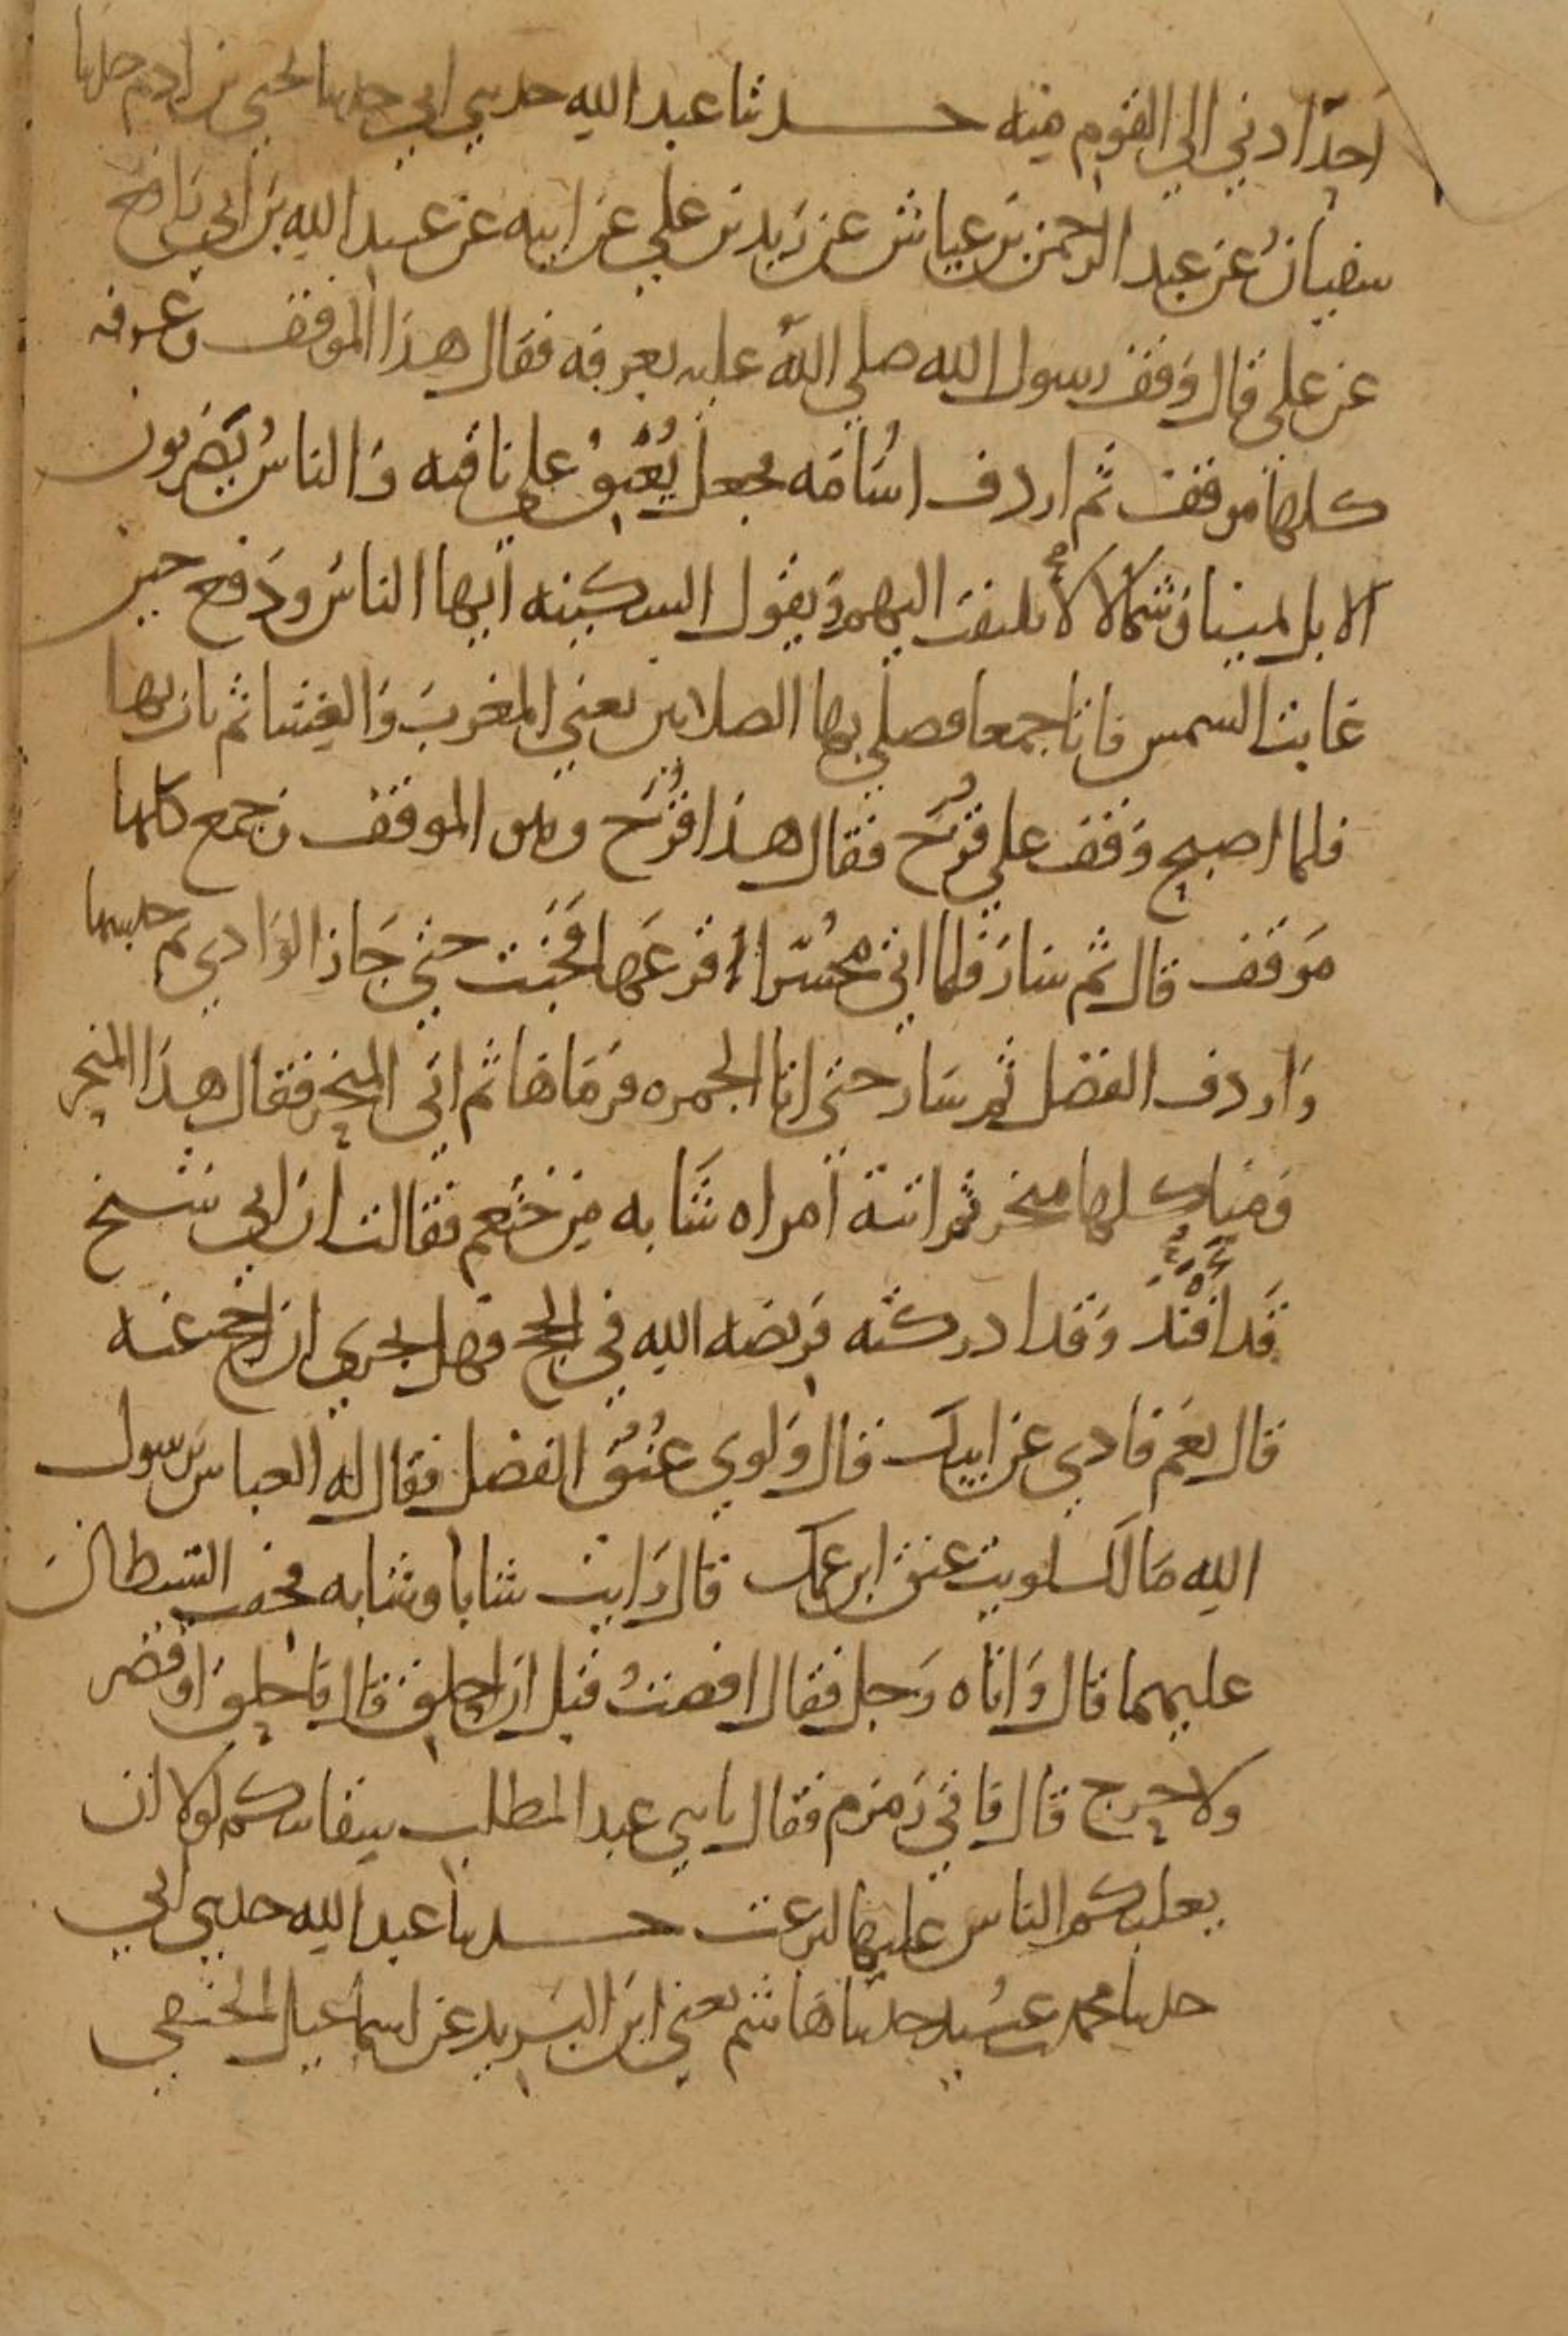 احدا ادنى الى القوم منه حدثنا عبد الله حدثني ابي حدثنا يحيى بن ادم حدثنا
سفيان عن عبد الرحمن بن عياش عن زيد بن علي عن ابيه عن عبيد الله بن ابي رافع
عن علي قال وقف رسول الله صلى الله عليه بعرفه فقال هذا الموقف وعرفه
كلها موقف ثم اردف اسامه فجعل يعنق على ناقته والناس يضربون
الابل يمينا وشمالا لا يلتفت اليهم ويقول السكينه ايها الناس ودفع حين
غابت الشمس فاتا جمعا فصلى بها الصلاتين يعني المغرب والعشا ثم بات بها
فلما اصبح وقف على قزح فقال هذا قزح وهو الموقف وجمع كلها
موقف قال ثم سار فلما اتى محسرا قرعها فخبت حتى جاز الوادي ثم حبسها
واردف الفضل ثم سار حتى اتا الجمره فرماها ثم اتى المنحر فقال هذا المنحر
ومنا كلها منحر ثم اتته امراه شابه من خثعم فقالت ان ابي شيخ
قد افند وقد ادركته فريضه الله في الحج فهل يجزي ان احج عنه
قال نعم فادي عن ابيك قال ولوى عنق الفضل فقال له العباس يرسول
الله ما لك لويت عنق ابن عمك قال رايت شابا وشابه فخفت الشيطان
عليهما قال واتاه رجل فقال افضت قبل ان احلق قال فاحلق او قصر
ولا حرج قال فاتى زمزم فقال يا بني عبد المطلب سقايتكم لولا ان
يغلبكم الناس عليها لنزعت حدثنا عبد الله حدثني ابي
حدثنا محمد بن عبيد حدثنا هاشم يعني ابن البريد عن اسماعيل الحنفي